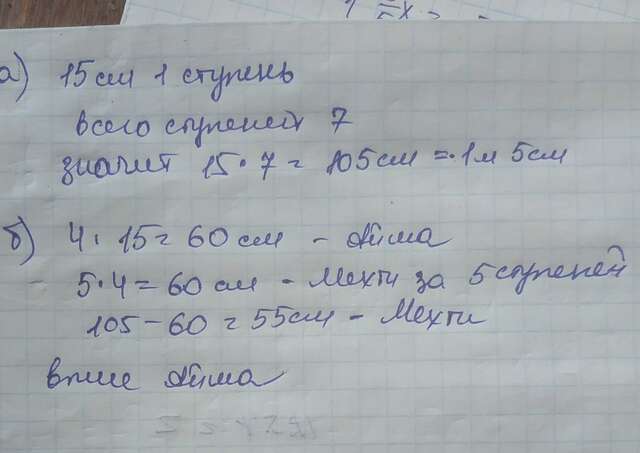 а) 15 см 1 ступень
всего ступеней 7
значит 15 · 7 = 105 см = 1 м 5 см
б) 4 · 15 = 60 см - Айша
5 · 4 = 60 см - Мехти за 5 ступеней
105 - 60 = 55 см - Мехти
выше Айша